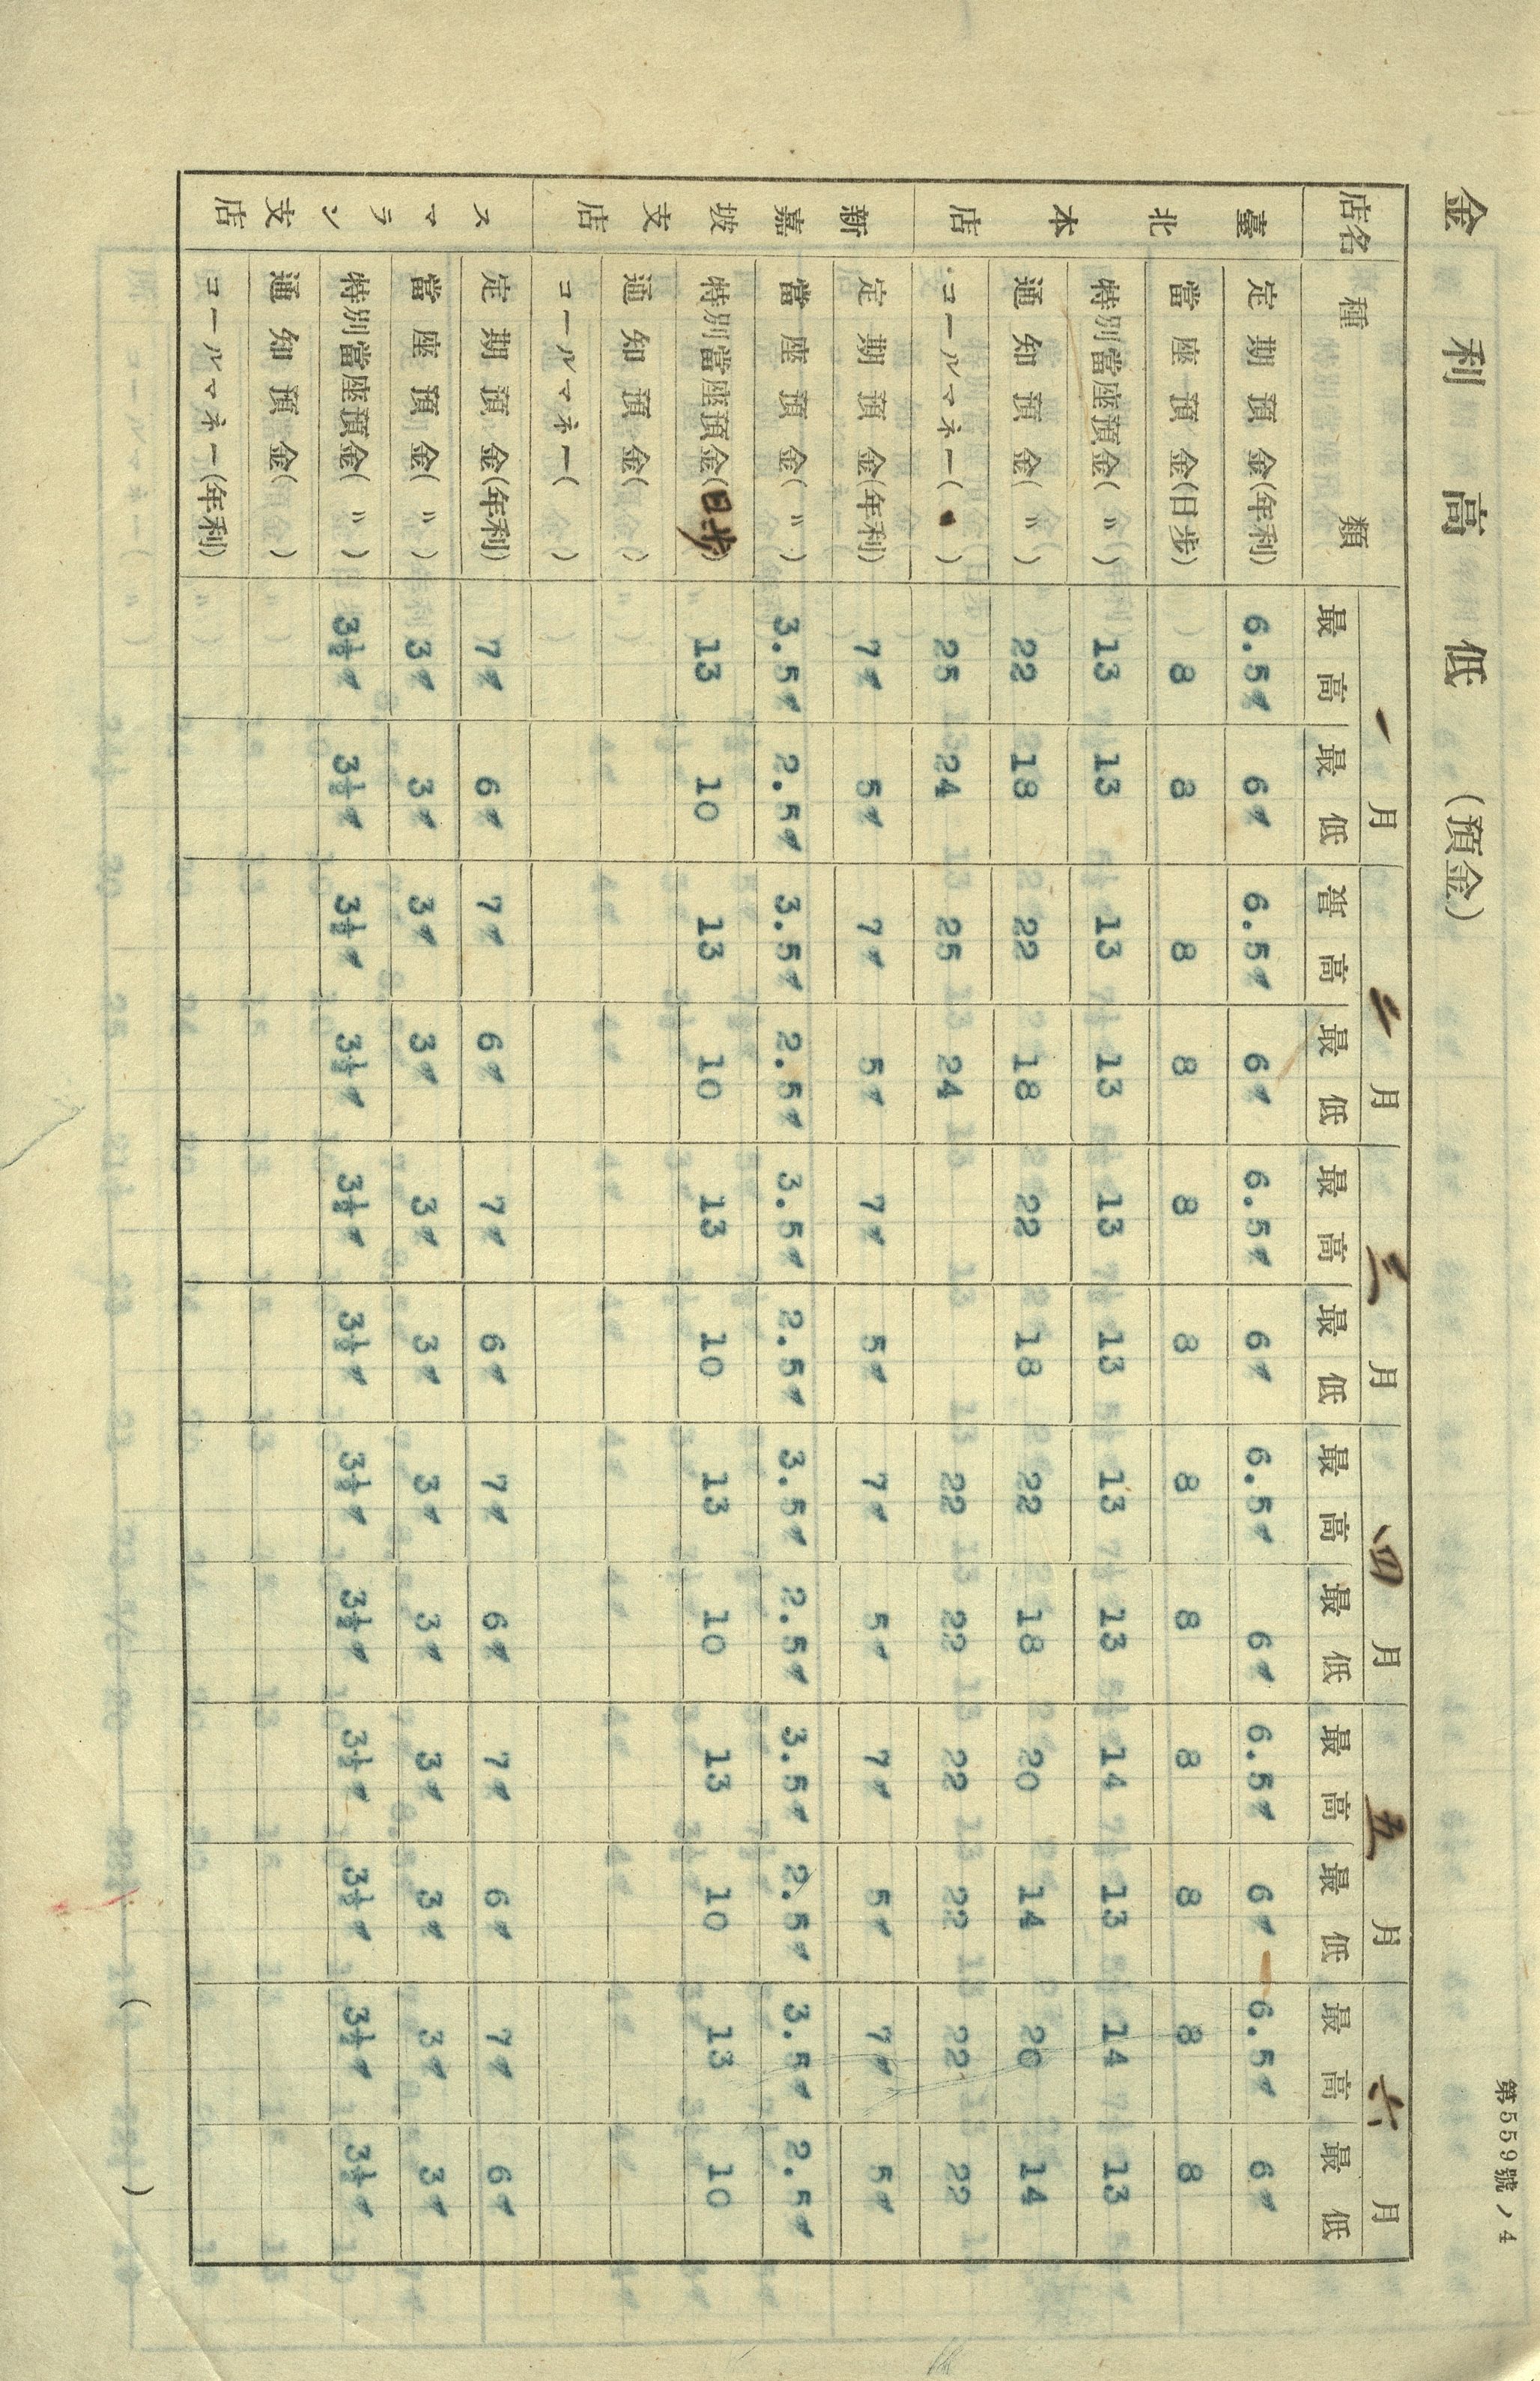 第559號ノ4
金利高低（預金）
店名 種類 一月 二月 三月 四月 五月 六月
最高 最低 最高 最低 最高 最低 最高 最低 最高 最低 最高 最低
臺北本店
定期預金(年利) 6.5% 6% 6.5% 6% 6.5% 6% 6.5% 6% 6.5% 6% 6.5% 6%
當座預金(日步) 8 8 8 8 8 8 8 8 8 8 8 8
特別當座預金(〃) 13 13 13 13 13 13 13 13 14 13 14 13
通知預金(〃) 22 18 22 18 22 18 22 18 20 14 20 14
コールマネー( ) 25 24 25 24 22 22 22 22 22 22
新嘉坡支店
定期預金(年利) 7% 5% 7% 5% 7% 5% 7% 5% 7% 5% 7% 5%
當座預金(〃) 3.5% 2.5% 3.5% 2.5% 3.5% 2.5% 3.5% 2.5% 3.5% 2.5% 3.5% 2.5%
特別當座預金(日步) 13 10 13 10 13 10 13 10 13 10 13 10
通知預金( )
コールマネー( )
スマラン支店
定期預金(年利) 7% 6% 7% 6% 7% 6% 7% 6% 7% 6% 7% 6%
當座預金(〃) 3% 3% 3% 3% 3% 3% 3% 3% 3% 3% 3% 3%
特別當座預金(〃) 3½% 3½% 3½% 3½% 3½% 3½% 3½% 3½% 3½% 3½% 3½% 3½%
通知預金( )
コールマネー(年利)
( )